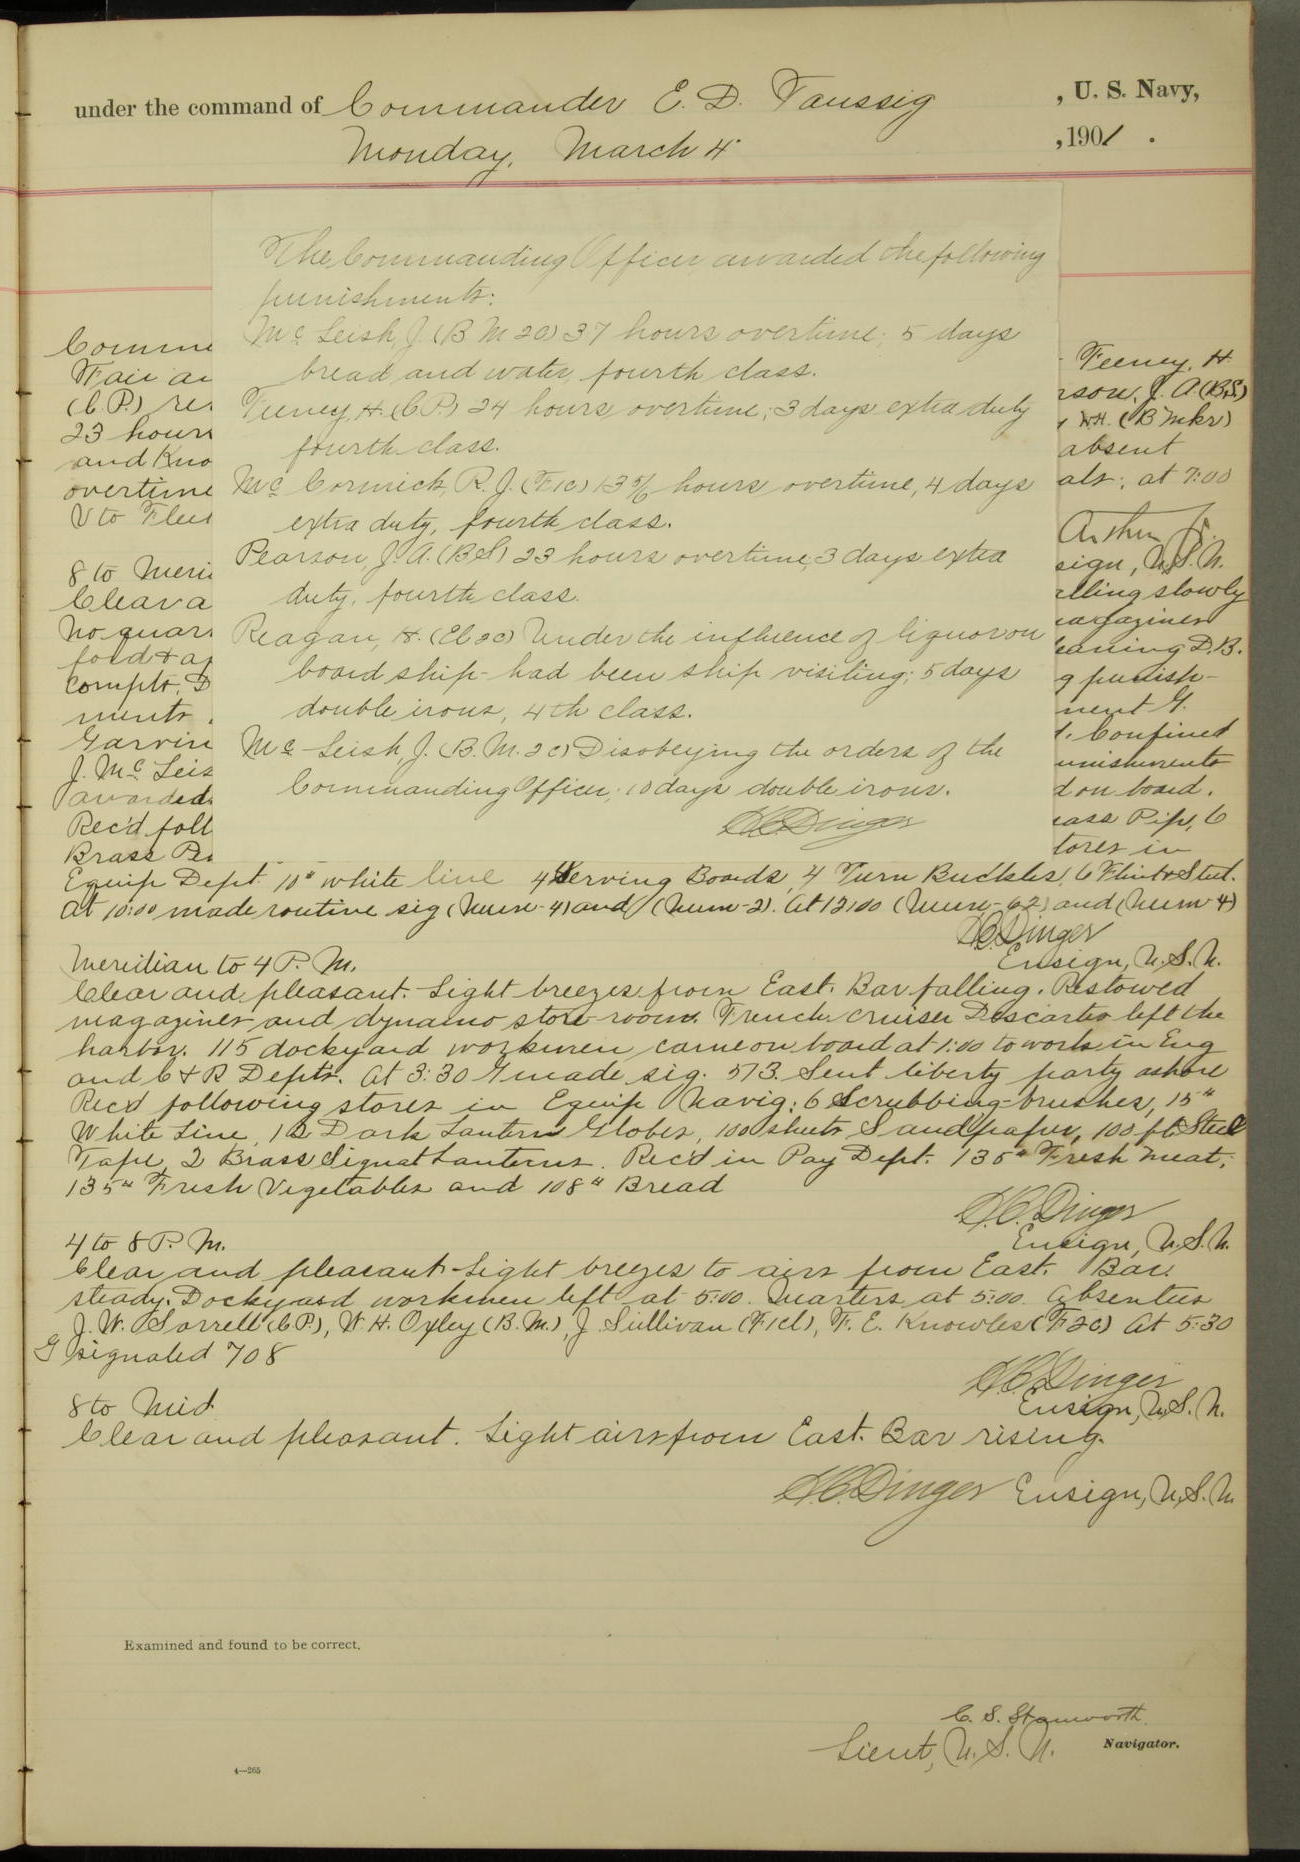 under the command of Commander E. D. Taussig , U. S. Navy,
Monday, March 4 , 1901 .
The Commanding Officer awarded the following
punishments:
Mc Leish, J. (B M 2c) 37 hours overtime; 5 days
bread and water, fourth class.
Feeney, H. (C.P.) 24 hours overtime; 3 days extra duty
fourth class.
Mc Cormick, R. J. (F1c) hours overtime, 4 days
extra duty, fourth class.
Pearson, J. A. (BS) 23 hours overtime, 3 days extra
duty, fourth class.
Reagan, H. (El 2c) Under the influence of liquor on
board ship - had been ship visiting; 5 days
double irons, 4th class.
Mc Leish, J. (B. M. 2c) Disobeying the orders of the
Commanding Officer; 10 days double irons.
H.C. Dinger
Comme
Fair an
(C.P.) re
23 hours
and Kno
overtime
8 to Meri
Clear a
No quar
Compts. D
ments
Garvin
J. Mc Leis
awarded
Rec'd foll
Brass Pe
Feeney, H.
rson, J. A. (B.S.)
W.H. (B Mkr)
absent
als; at 7:00
Arthur Jr.
sign, U.S.N.
alling slowly
agazines
eaning D.B.
g punish-
ment G.
d. Confined
unishments
d on board.
rass Pipe, 6
tores in
Equip Dept. 10# white line 4 Serving Boards, 4 Turn Buckles, 6 Flint & Steel.
At 10:00 made routine sig (Num-4) and (Num-2). At 12:00 (Num-62) and (Num-4)
H.C. Dinger
Ensign, U.S.N.
Meridian to 4 P. M.
Clear and pleasant. Light breezes from East. Bar falling. Restowed
magazines and dynamo store room. French cruiser Descartes left the
harbor. 115 dockyard workmen came on board at 1:00 to work in Eng
and C & R Depts. At 3:30 G made sig. 573. Sent liberty party ashore
Rec'd following stores in Equip Navig: 6 Scrubbing-brushes, 15#
White Line, 12 Dark Lantern Globes, 100 sheets Sandpaper, 100 ft Steel
Tape, 2 Brass Signal Lanterns. Rec'd in Pay Dept. 135# Fresh Meat,
135# Fresh Vegetables and 108# Bread
H.C. Dinger
Ensign, U.S.N.
4 to 8 P. M.
Clear and pleasant - Light breezes to airs from East. Bar.
steady. Dockyard workmen left at 5:00. Quarters at 5:00. Absentees
J. W. Sorrell (C.P.), W. H. Oxley (B.M.), J. Sullivan (F1cl), F. E. Knowles (F2c) At 5:30
G signaled 708
H.C. Dinger
Ensign, U.S.N.
8 to Mid
Clear and pleasant. Light airs from East. Bar rising.
H.C. Dinger Ensign, U.S.N.
Examined and found to be correct.
C. S. Stanworth
Lieut, U. S. N. Navigator.
4—265